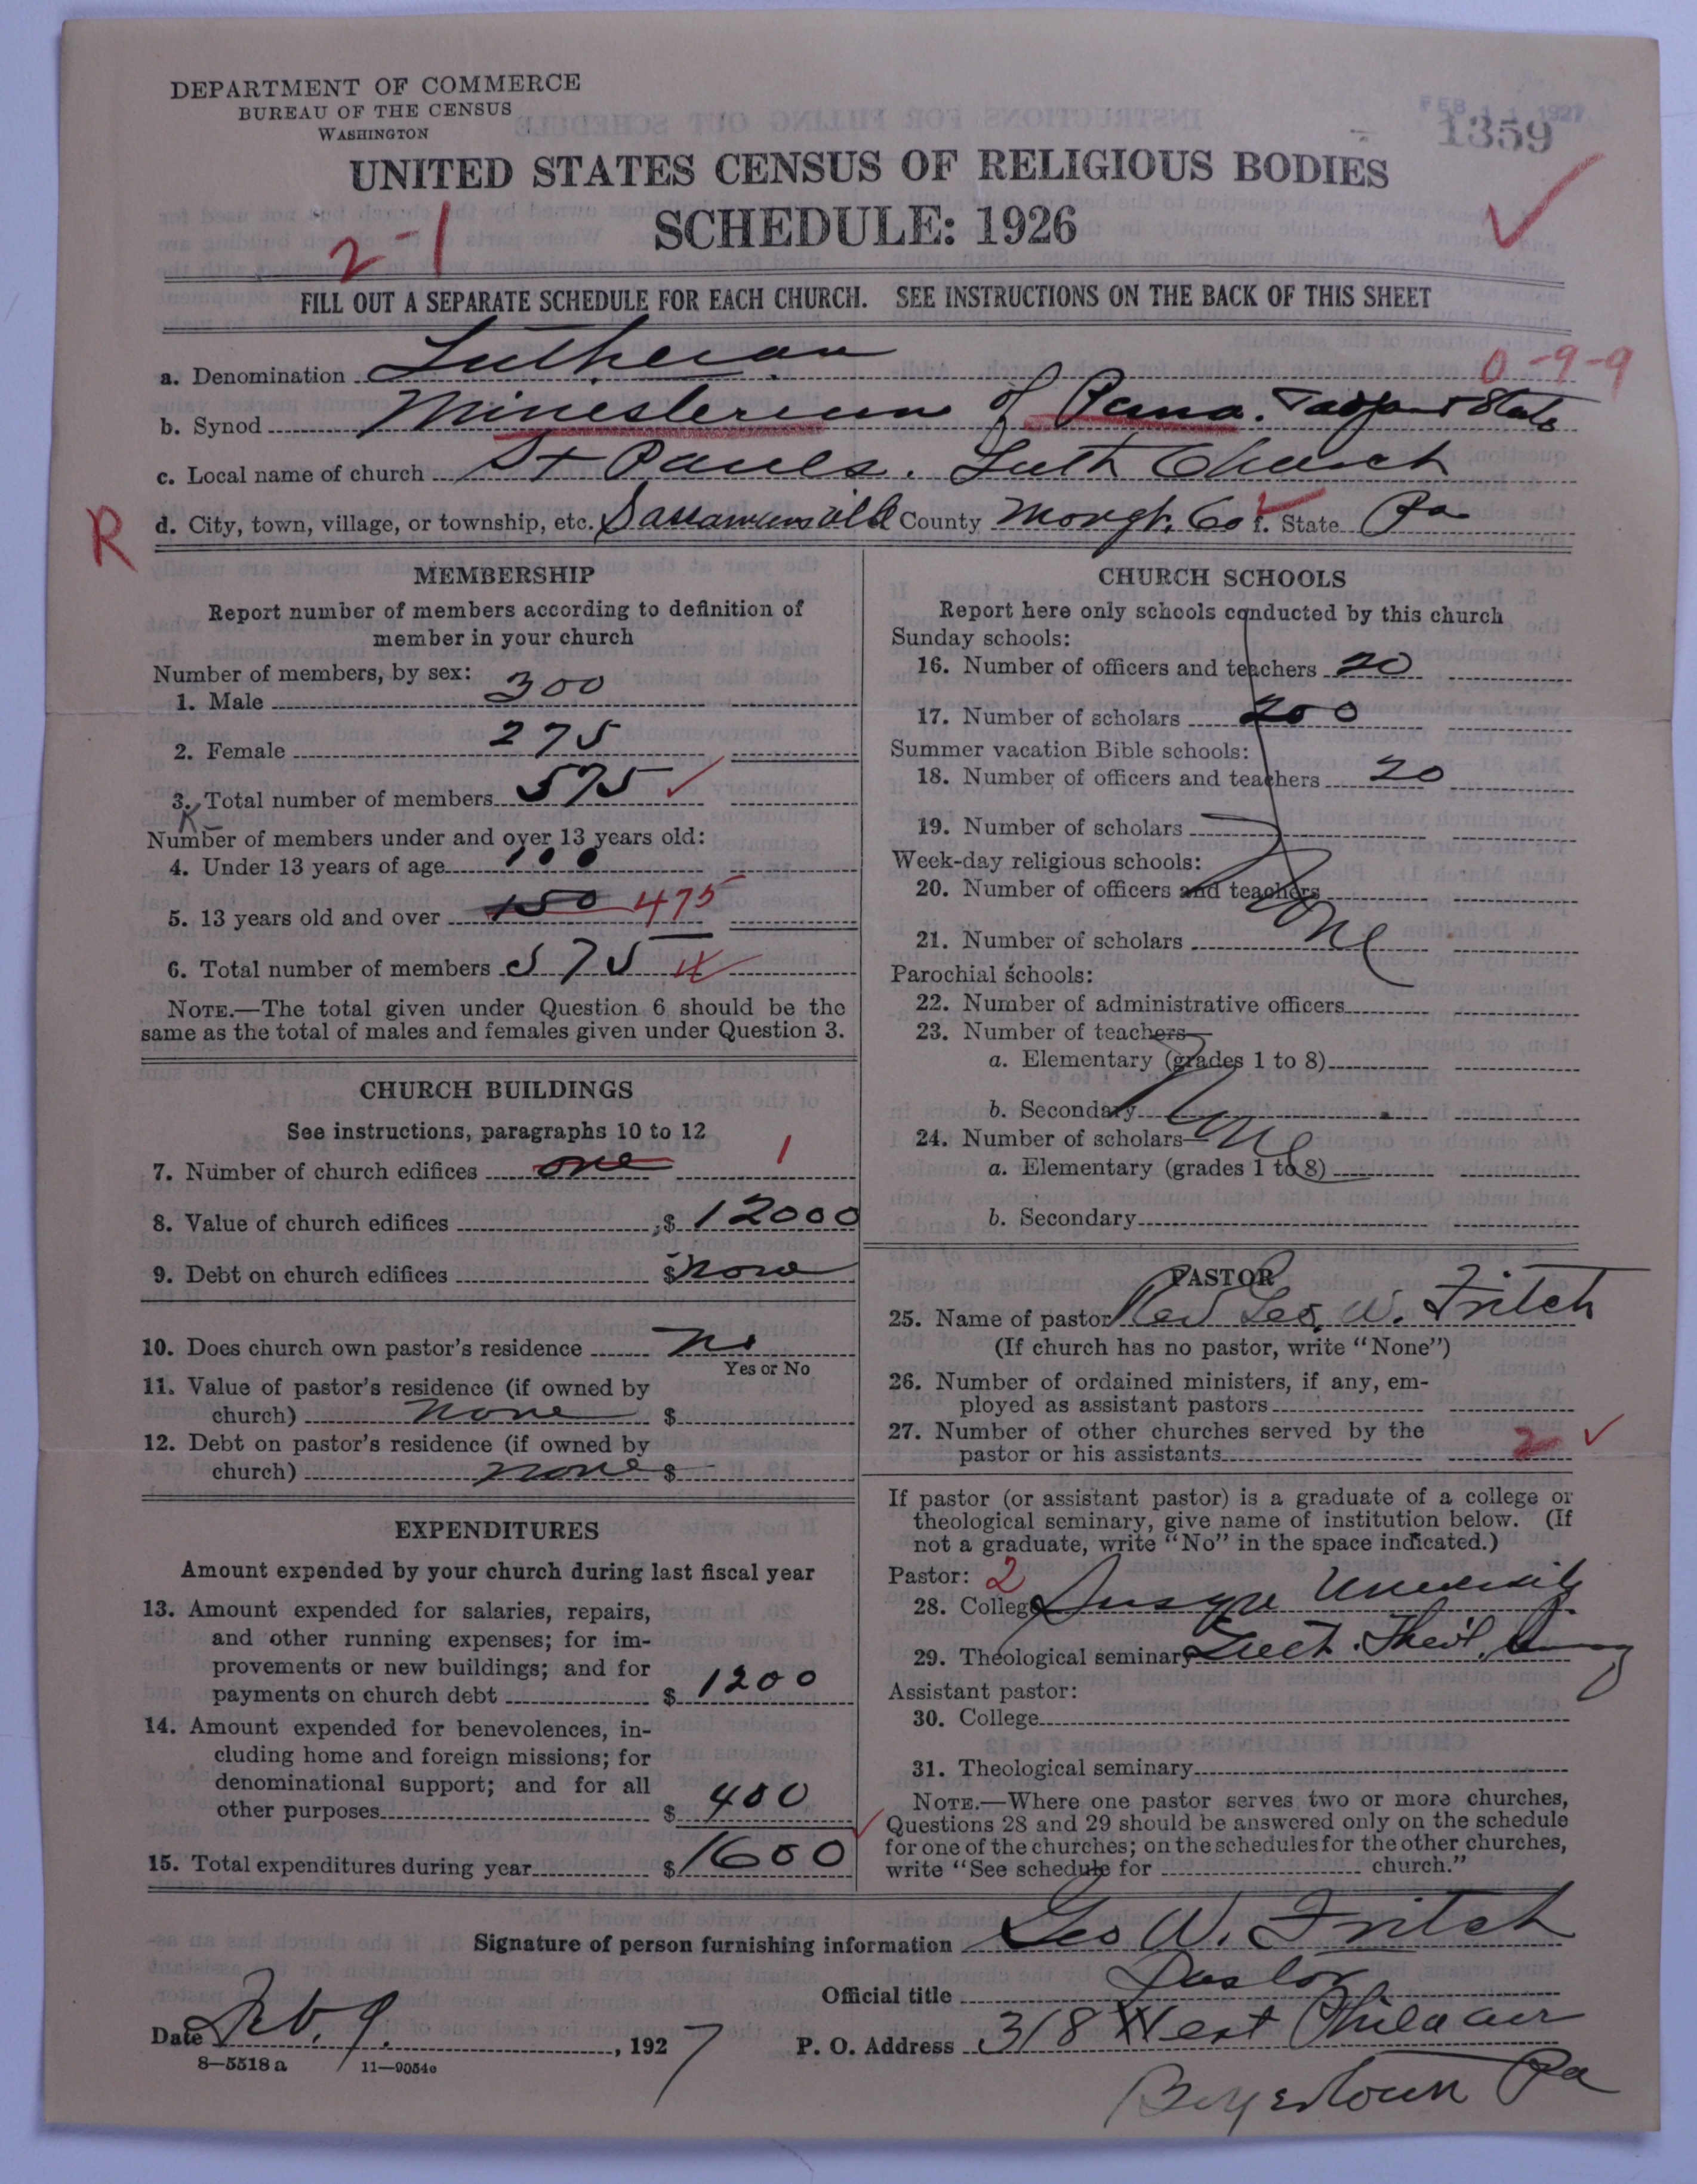 DEPARTMENT OF COMMERCE
BUREAU OF THE CENSUS
WASHINGTON
FEB 11 1927
1359
UNITED STATES CENSUS OF RELIGIOUS BODIES
SCHEDULE: 1926
2-1
FILL OUT A SEPARATE SCHEDULE FOR EACH CHURCH. SEE INSTRUCTIONS ON THE BACK OF THIS SHEET
a. Denomination Lutheran
0-9-9
b. Synod Ministerium of Penna. State
c. Local name of church St Pauls. Luth Church
R
d. City, town, village, or township, etc. Sassamansville County Montg. Co f. State Pa
MEMBERSHIP
Report number of members according to definition of
member in your church
Number of members, by sex:
1. Male 300
2. Female 275
3. Total number of members 575
Number of members under and over 13 years old:
4. Under 13 years of age 100
5. 13 years old and over 150 475
6. Total number of members 575
NOTE.—The total given under Question 6 should be the
same as the total of males and females given under Question 3.
CHURCH BUILDINGS
See instructions, paragraphs 10 to 12
7. Number of church edifices one 1
8. Value of church edifices $ 12000
9. Debt on church edifices $ none
10. Does church own pastor's residence no
Yes or No
11. Value of pastor's residence (if owned by
church) none $
12. Debt on pastor's residence (if owned by
church) none $
EXPENDITURES
Amount expended by your church during last fiscal year
13. Amount expended for salaries, repairs,
and other running expenses; for im-
provements or new buildings; and for
payments on church debt $ 1200
14. Amount expended for benevolences, in-
cluding home and foreign missions; for
denominational support; and for all
other purposes $ 400
15. Total expenditures during year $ 1600
CHURCH SCHOOLS
Report here only schools conducted by this church
Sunday schools:
16. Number of officers and teachers 20
17. Number of scholars 200
Summer vacation Bible schools:
18. Number of officers and teachers 20
19. Number of scholars
Week-day religious schools:
20. Number of officers and teachers
None
21. Number of scholars
Parochial schools:
22. Number of administrative officers
23. Number of teachers—
a. Elementary (grades 1 to 8)
b. Secondary
None
24. Number of scholars—
a. Elementary (grades 1 to 8)
b. Secondary
PASTOR
25. Name of pastor Rev Geo. W. Fritch
(If church has no pastor, write "None")
26. Number of ordained ministers, if any, em-
ployed as assistant pastors
27. Number of other churches served by the
pastor or his assistants 2
If pastor (or assistant pastor) is a graduate of a college or
theological seminary, give name of institution below. (If
not a graduate, write "No" in the space indicated.)
Pastor: 2
28. College Susqu University
29. Theological seminary Luth. Theol.
Assistant pastor:
30. College
31. Theological seminary
NOTE.—Where one pastor serves two or more churches,
Questions 28 and 29 should be answered only on the schedule
for one of the churches; on the schedules for the other churches,
write "See schedule for church."
Signature of person furnishing information Geo W. Fritch
Official title Pastor
Date Feb. 9. , 1927
P. O. Address 318 West Phila ave
Boyertown Pa
8—5518 a 11—9054c